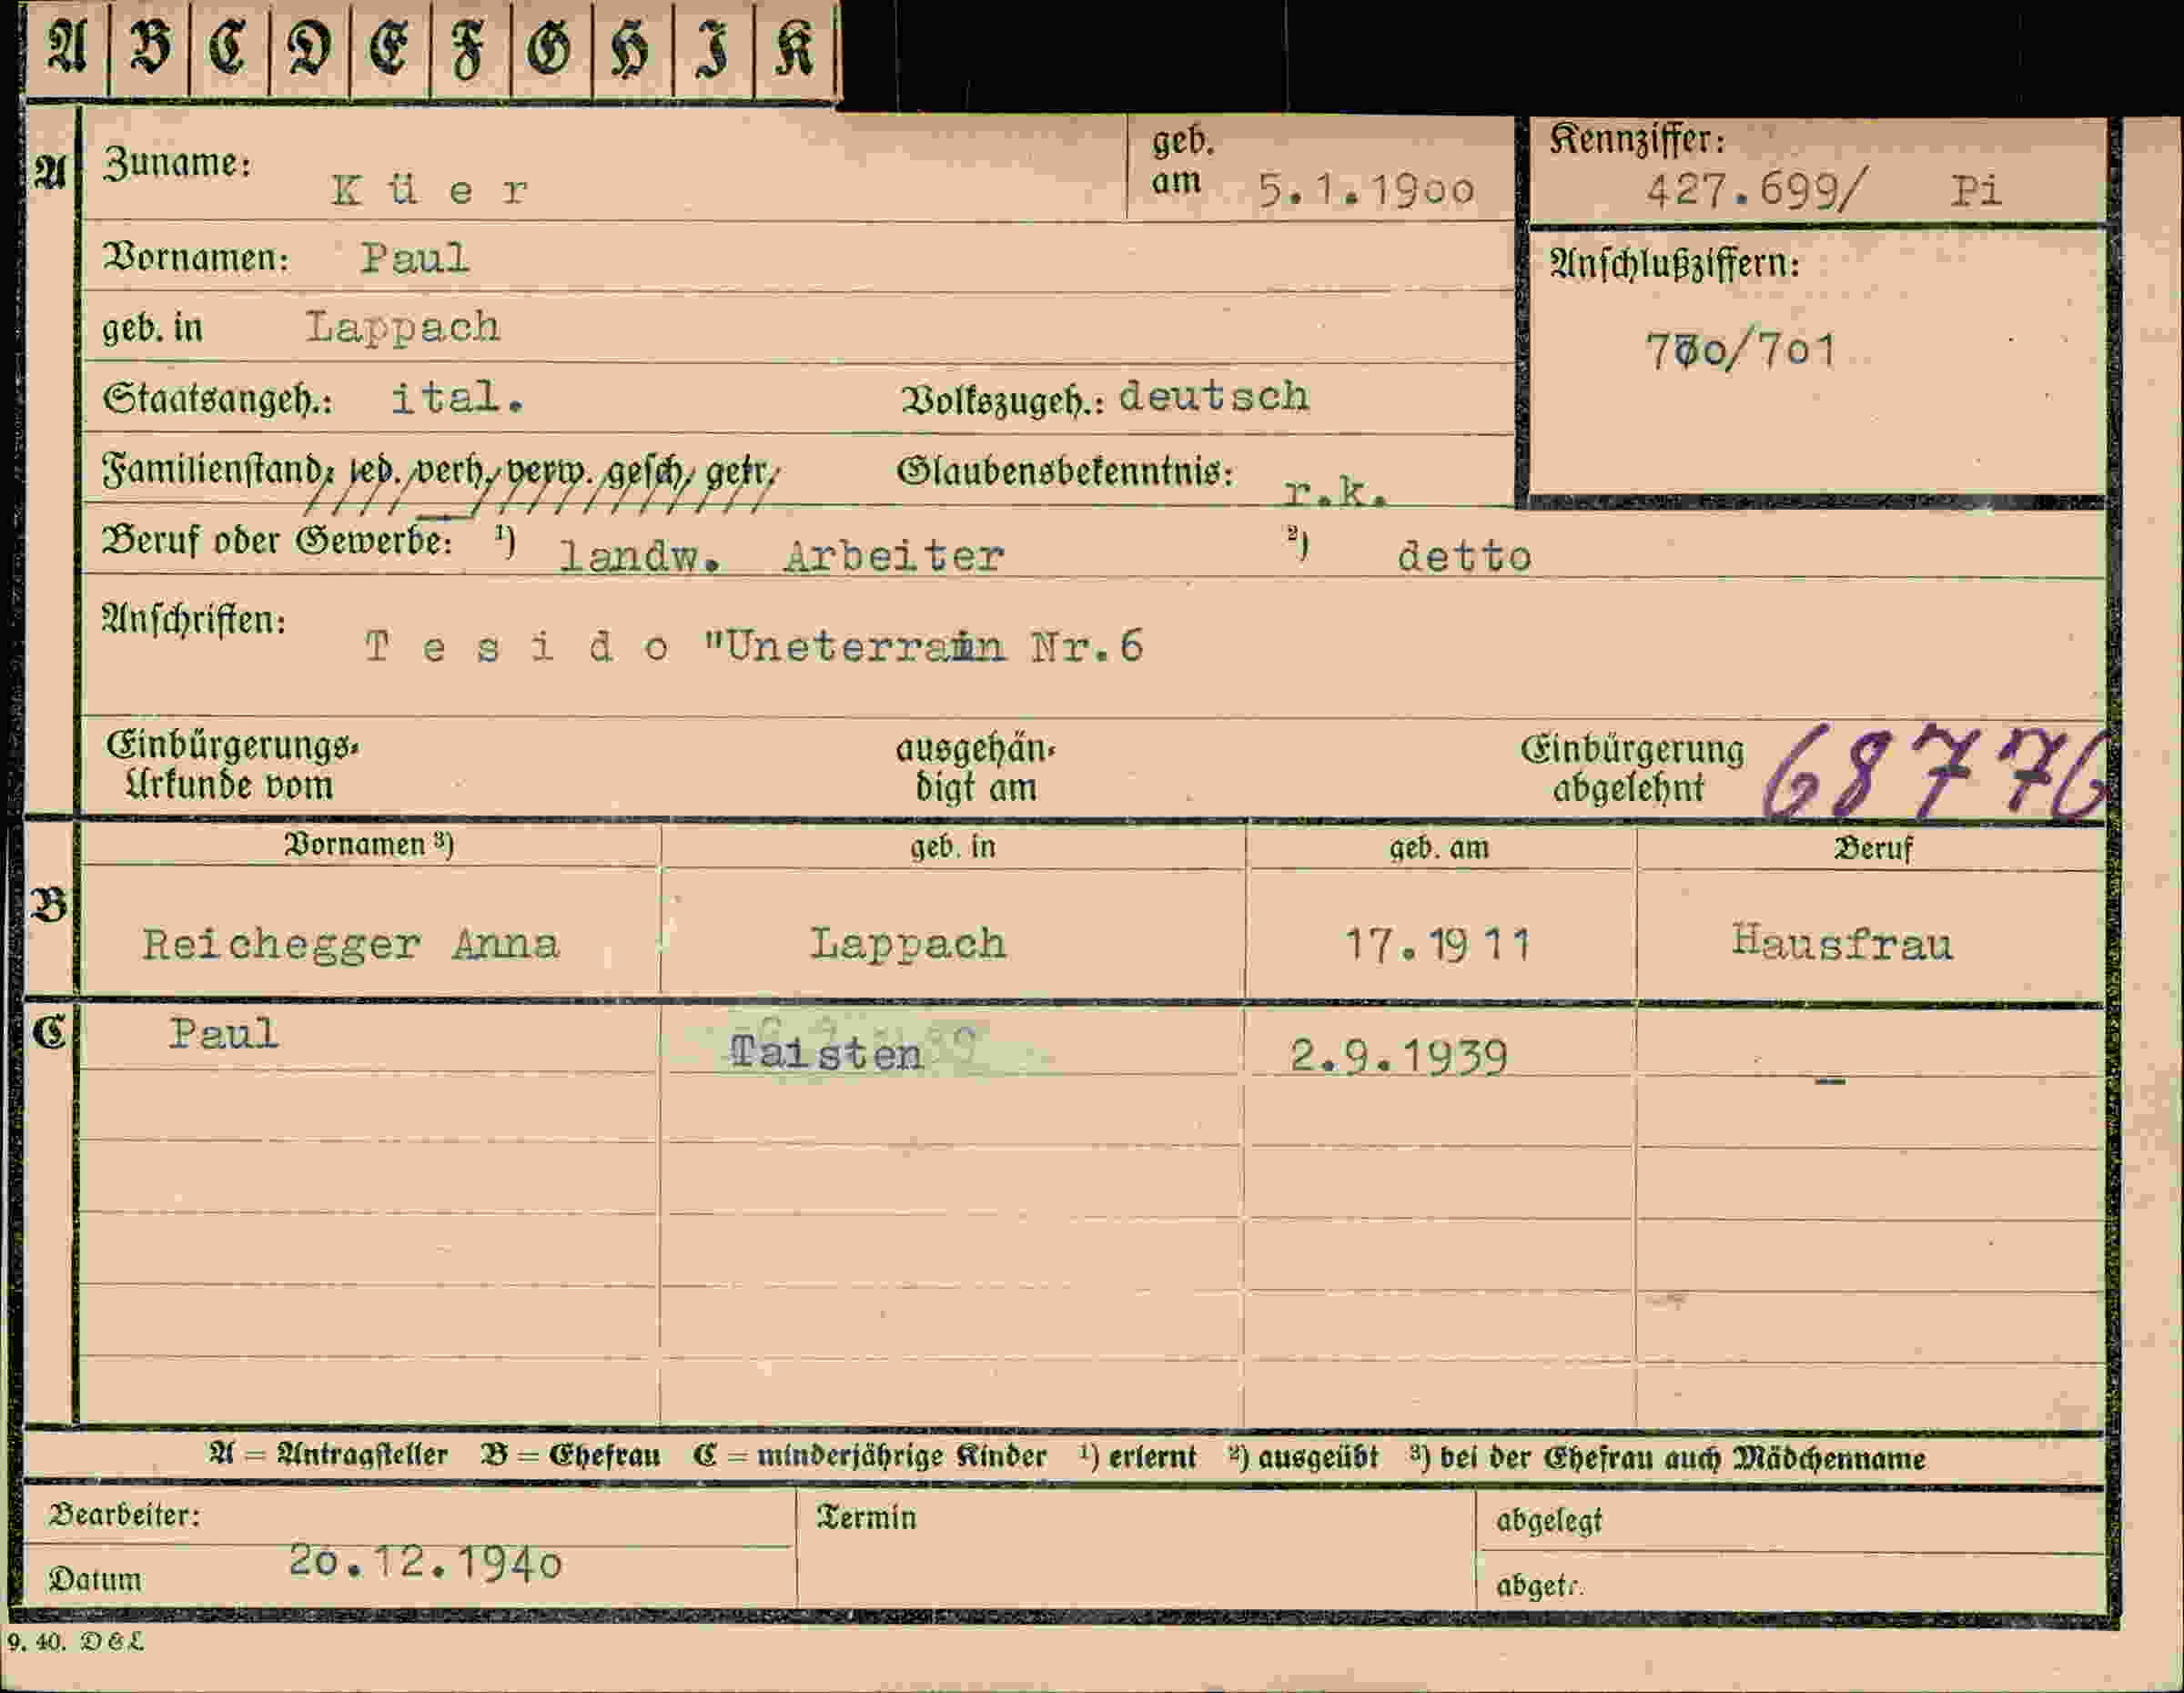 A B C D E F G H I K
A Zuname: K ü e r geb. am 5.1.1900 Kennziffer: 427.699/ Pi
Vornamen: Paul
Anschlußziffern:
geb. in Lappach
700/701
Staatsangeh.: ital. Volkszugeh.: deutsch
Familienstand: led. verh. verw. gesch. getr. Glaubensbekenntnis: r.k.
Beruf oder Gewerbe: 1) landw. Arbeiter 2) detto
Anschriften: T e s i d o "Uneterrain Nr.6
Einbürgerungs-
Urkunde vom
ausgehän-
digt am
Einbürgerung
abgelehnt
68776
Vornamen 3) geb. in geb. am Beruf
B Reichegger Anna Lappach 17.1911 Hausfrau
C Paul Taisten 2.9.1939 _
A = Antragsteller B = Ehefrau C = minderjährige Kinder 1) erlernt 2) ausgeübt 3) bei der Ehefrau auch Mädchenname
Bearbeiter: Termin abgelegt
Datum 20.12.1940 abgetr.
9. 40. D & L